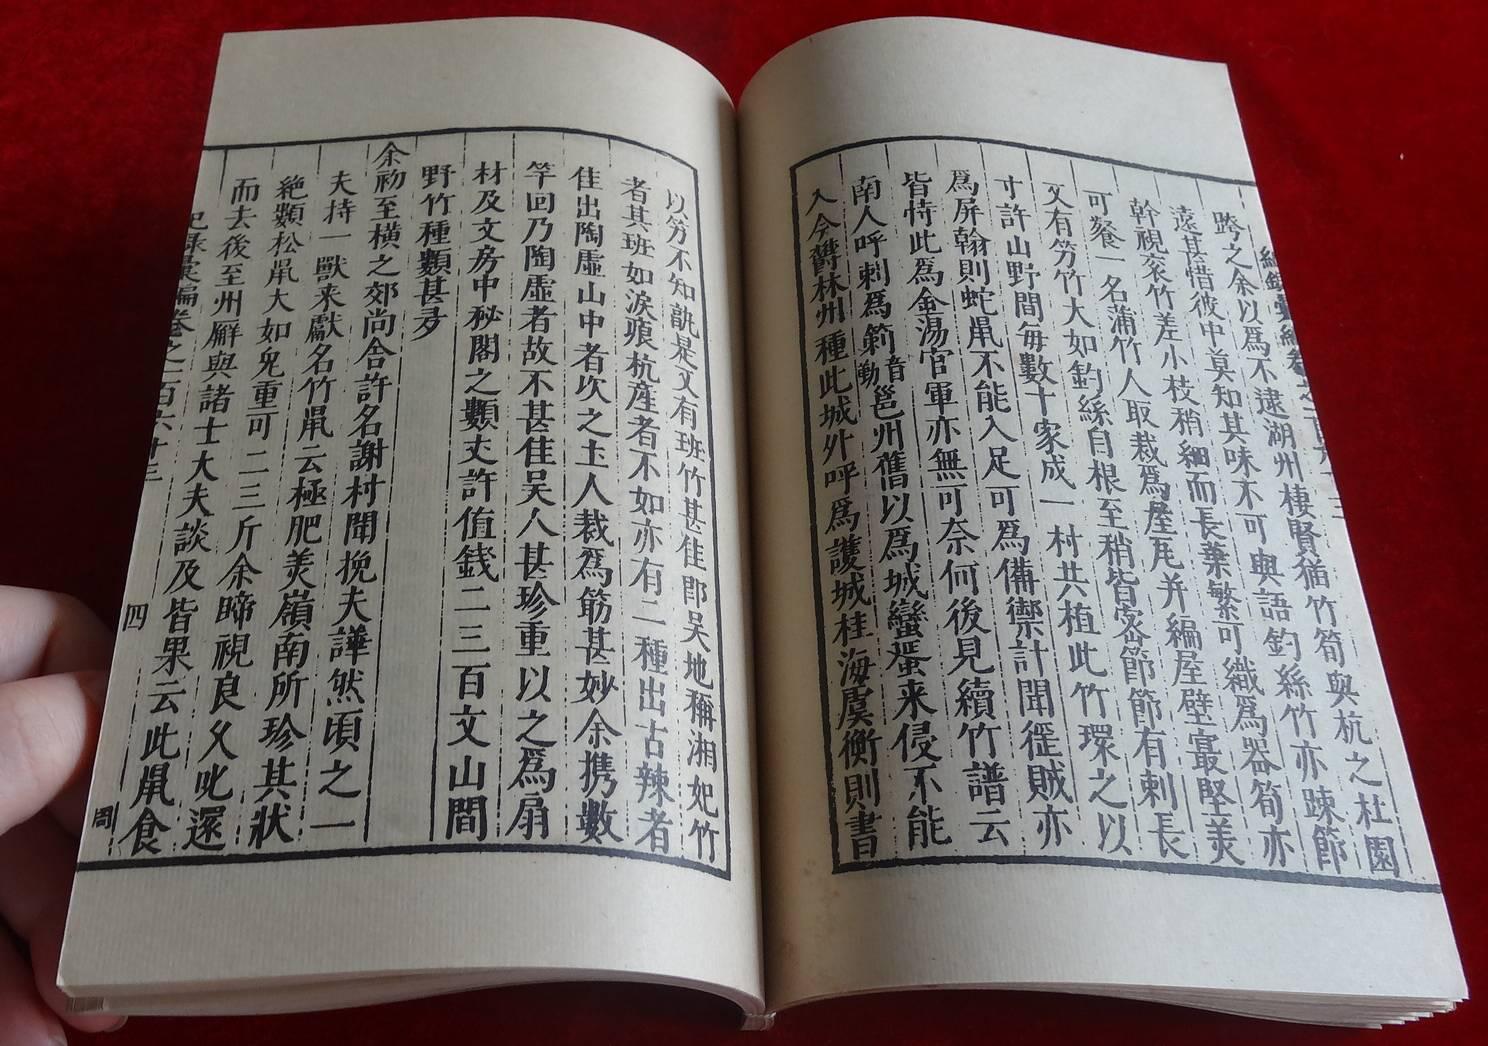 跨之余以爲不逮湖州棲賢猫竹筍與杭之杜園
遠甚惜彼中莫知其味不可與語釣絲竹亦踈節
幹視衮竹差小枝稍細而長葉繁可織爲器筍亦
可餐一名蒲竹人取裁爲屋瓦并編屋壁寂堅美
又有竻竹大如釣絲自根至稍皆宻節節有刺長
寸許山野間每數十家成一村共植此竹環之以
爲屏翰則蛇鼠不能入足可爲備禦計聞徃賊亦
皆恃此爲金湯官軍亦無可奈何後見續竹譜云
南人呼刺爲竻音勒邕州舊以爲城蠻蜑来侵不能
入今欝林州種此城外呼爲護城桂海虞衡則書
以竻不知孰是又有班竹甚佳即吴地稱湘妃竹
者其班如淚痕杭産者不如亦有二種出古辣者
佳出陶虛山中者次之土人裁爲筯甚妙余携數
竿回乃陶虛者故不甚佳吴人甚珍重以之爲扇
材及文房中秘閣之類丈許值錢二三百文山間
野竹種類甚夛
余初至橫之郊尚舍許名謝村聞挽夫譁然頃之一
夫持一獸来獻名竹鼠云極肥美嶺南所珍其狀
絶類松鼠大如兔重可二三斤余睇視良久叱還
而去後至州廨與諸士大夫談及皆果云此鼠食
紀録彙編卷之一百六十三
四
周